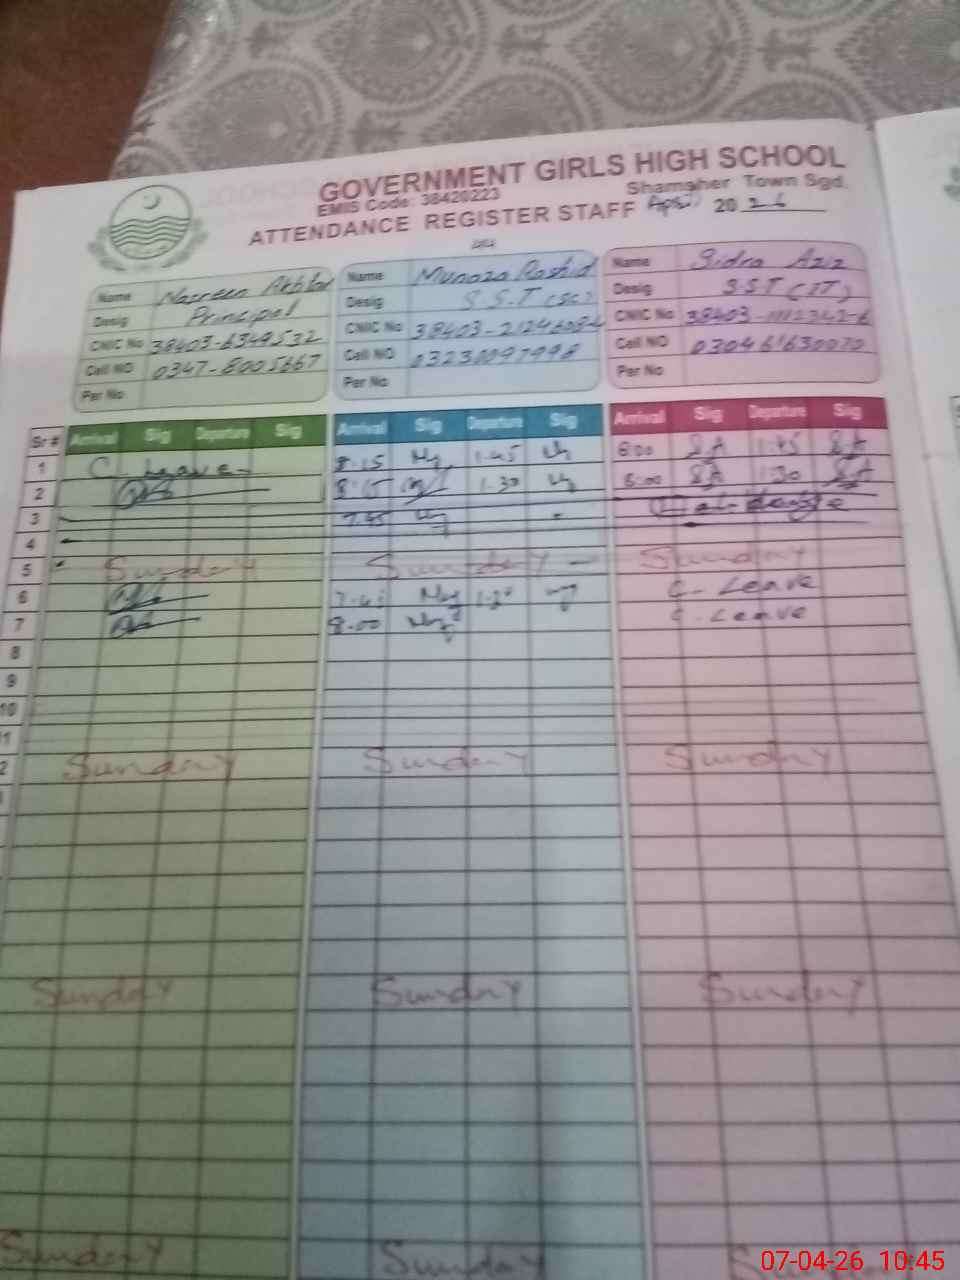 GOVERNMENT GIRLS HIGH SCHOOL
EMIS Code: 38420223 Shamsher Town Sgd.
ATTENDANCE REGISTER STAFF April 2026
Name Nasreen Akhtar
Desig Principal
CNIC No 38403-6349532
Cell NO 0347-8005667
Per No
Name Munaza Rashid
Desig S.S.T (SC)
CNIC No
Cell NO 03230097998
Per No
Name Sidra Aziz
Desig S.S.T (IT)
CNIC No
Cell NO
Per No
Sr # Arrival Sig Departure Sig Arrival Sig Departure Sig Arrival Sig Departure Sig
1 C. Leave 8.15 1.45 8:00 SA 1:45 SA
2 8.15 1.30 8:00 SA 1:30 SA
3 7.45
4
5 Sunday Sunday Sunday
6 C. Leave
7 8.00 C. Leave
8
9
10
Sunday Sunday Sunday
Sunday Sunday Sunday
Sunday Sunday
07-04-26 10:45